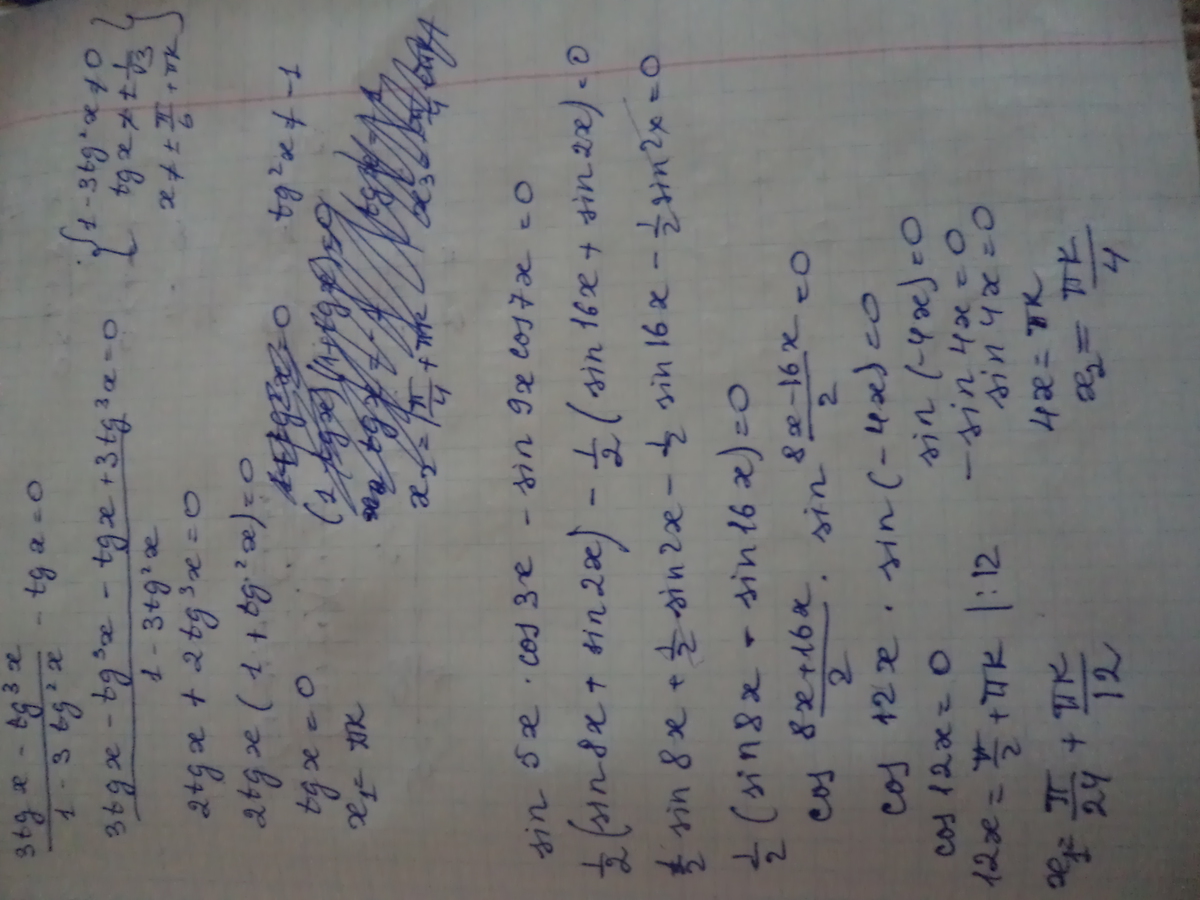 3tg x - tg³x / 1 - 3tg²x - tg x = 0
{ 1 - 3tg²x ≠ 0
tg x ≠ ± 1/√3
x ≠ ± π/6 + πk }
3tgx - tg³x - tgx + 3tg³x / 1 - 3tg²x = 0
2tgx + 2tg³x = 0
2tgx (1 + tg²x) = 0
tg²x ≠ -1
tgx = 0
x₁ = πk
x₂ = π/4 + πk
sin 5x · cos 3x - sin 9x cos 7x = 0
1/2 (sin 8x + sin 2x) - 1/2 (sin 16x + sin 2x) = 0
1/2 sin 8x + 1/2 sin 2x - 1/2 sin 16x - 1/2 sin 2x = 0
1/2 (sin 8x - sin 16x) = 0
cos 8x+16x / 2 · sin 8x-16x / 2 = 0
cos 12x · sin (-4x) = 0
cos 12x = 0
12x = π/2 + πk |:12
x₁ = π/24 + πk/12
sin (-4x) = 0
- sin 4x = 0
sin 4x = 0
4x = πk
x₂ = πk/4